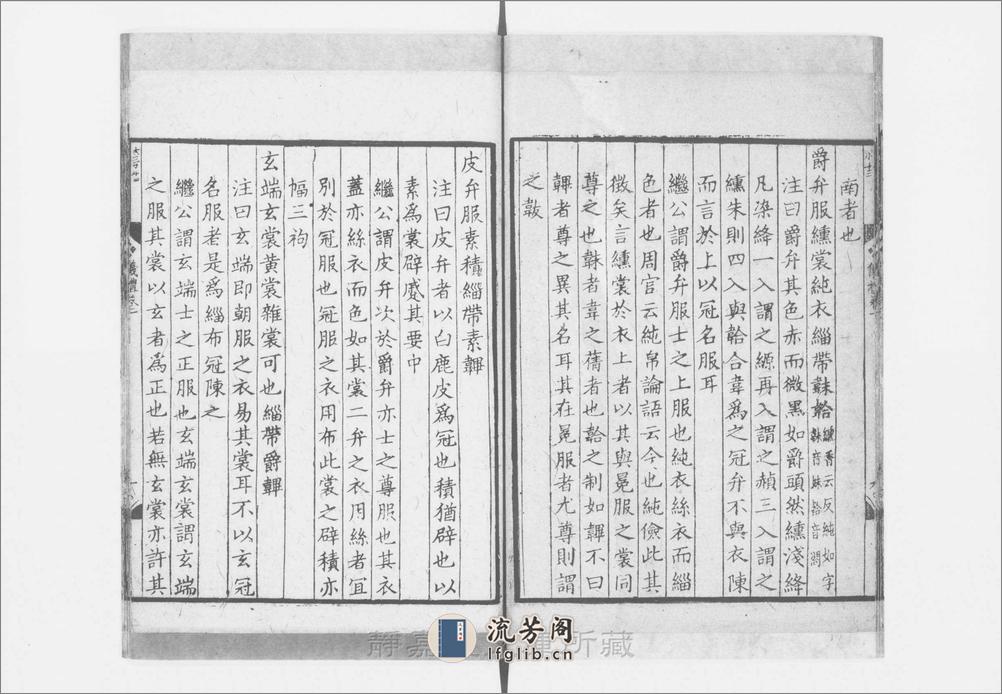 南者也
爵弁服纁裳純衣緇帶韎韐纁香云反純如字韎音妹韐音閤
注曰爵弁其色赤而微黑如爵頭然纁淺絳
凡染絳一入謂之縓再入謂之赬三入謂之
纁朱則四入與韐合韋爲之冠弁不與衣陳
而言於上以冠名服耳
繼公謂爵弁服士之上服也純衣絲衣而緇
色者也周官云純帛論語云今也純儉此其
徵矣言纁裳於衣上者以其與冕服之裳同
尊之也韎者韋之蒨者也韐之制如韠不曰
韠者尊之異其名耳其在冕服者尤尊則謂
之韍
皮弁服素積緇帶素韠
注曰皮弁者以白鹿皮爲冠也積猶辟也以
素爲裳辟蹙其要中
繼公謂皮弁次於爵弁亦士之尊服也其衣
蓋亦絲衣而色如其裳二弁之衣用絲者宜
別於冠服也冠服之衣用布此裳之辟積亦
幅三袧
玄端玄裳黃裳雜裳可也緇帶爵韠
注曰玄端即朝服之衣易其裳耳不以玄冠
名服者是爲緇布冠陳之
繼公謂玄端士之正服也玄端玄裳謂玄端
之服其裳以玄者爲正也若無玄裳亦許其
儀禮卷一
靜嘉堂文庫所藏
流芳阁
lfglib.cn